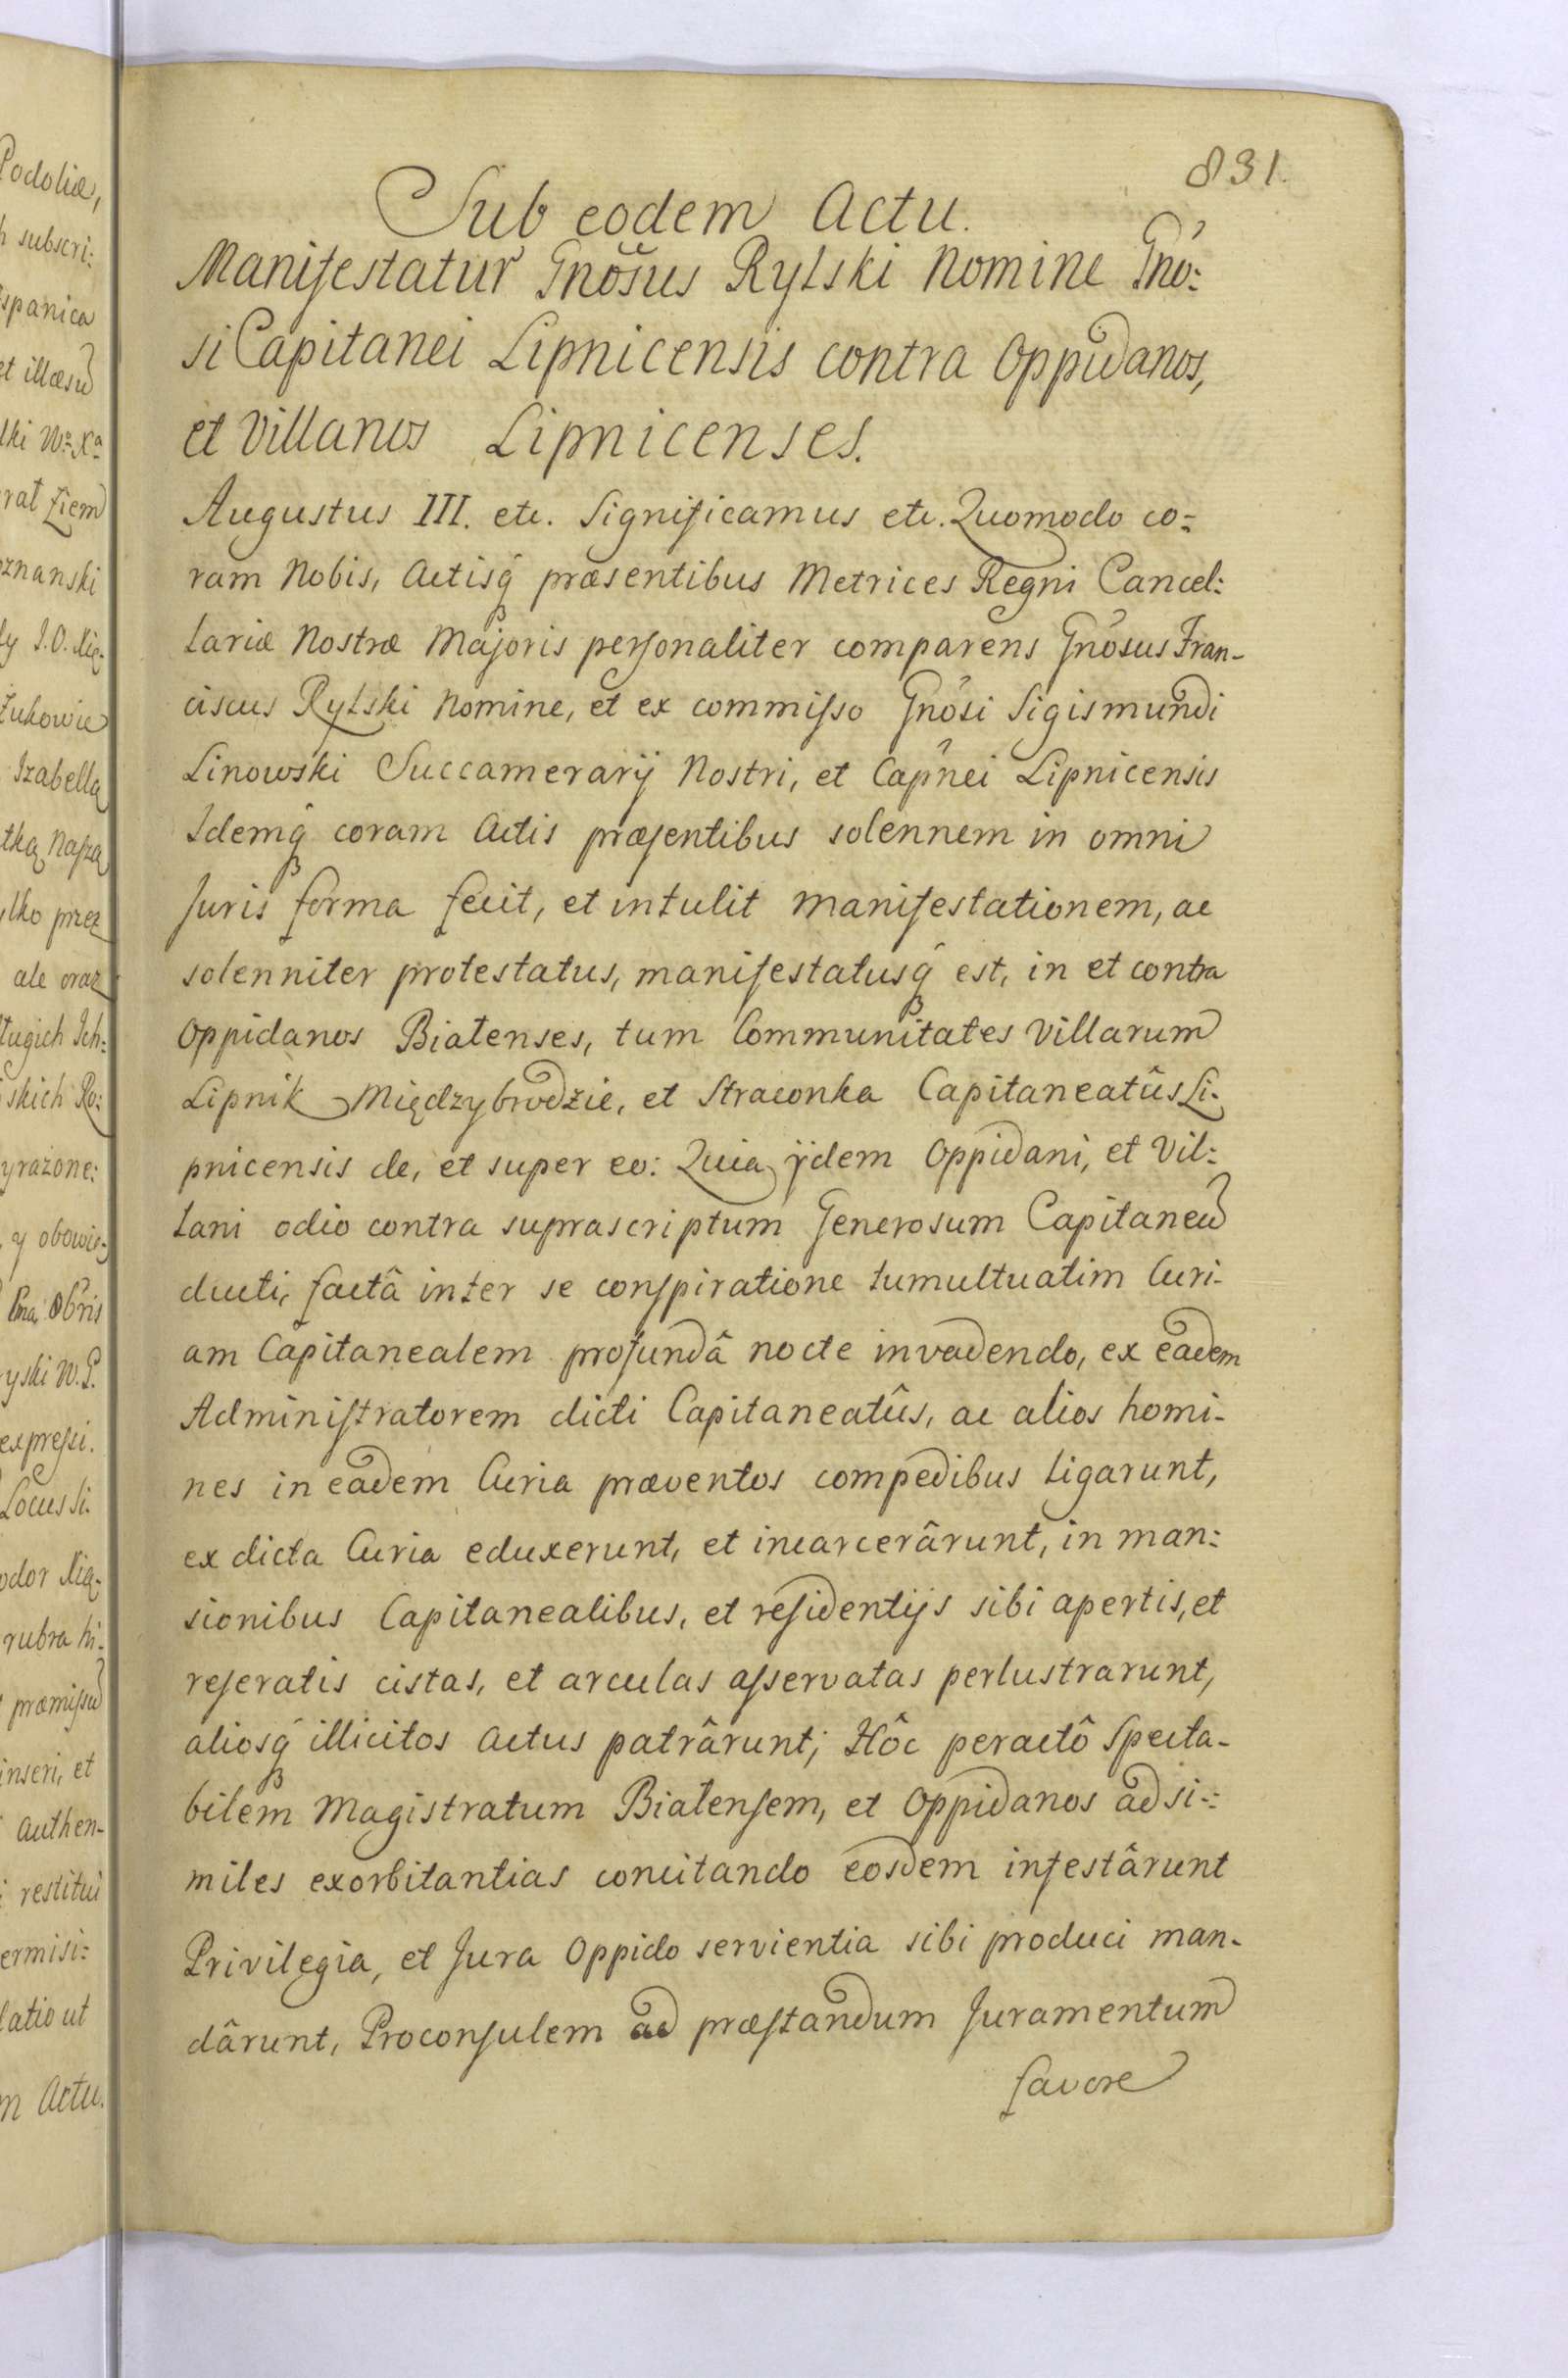 Podoliæ,
subscri:
spanica
et illæsũ
lki Wa Xa
rat Ziem
oznanski
ly J.O. Xią-
Żukowie
Izabella
tką naszą
ylko przez
ale oraz
ługich Ich:
skich Ro:
yrażone:
y obowią-
Pna, Obris
yski W. P.
expressi.
Locus Si.
odor Xią-
rubra hi-
præmissũ
inseri, et
authen-
restitui
ermisi:
latio ut
m Actu.
831.
Sub eodem Actu.
Manifestatur Gnõsus Rylski Nomine Gnõ:
si Capitanei Lipnicensis contra Oppidanos,
et Villanos Lipnicenses.
Augustus III. etc. Significamus etc. Quomodo co:
ram Nobis, Actisq́ præsentibus Metrices Regni Cancel:
lariæ Nostræ Majoris personaliter comparens Gnõsus Fran-
ciscus Rylski Nomine, et ex commisso Gnõsi Sigismundi
Linowski Succamerarij Nostri, et Capñei Lipnicensis
Idemq́ coram Actis præsentibus solennem in omni
Juris forma fecit, et intulit manifestationem, ac
solenniter protestatus, manifestatusq́ est, in et contra
Oppidanos Bialenses, tum Communitates Villarum
Lipnik Międzybrodzie, et Straconka Capitaneatûs Li-
pnicensis de, et super eo: Quia ijdem Oppidani, et Vil:
lani odio contra suprascriptum Generosum Capitaneũ
ducti, factâ inter se conspiratione tumultuatim Curi-
am Capitanealem profundâ nocte invadendo, ex eadem
Administratorem dicti Capitaneatûs, ac alios homi-
nes in eadem Curia præventos compedibus ligarunt,
ex dicta Curia eduxerunt, et incarcerârunt, in man:
sionibus Capitanealibus, et residentijs sibi apertis, et
reseratis cistas, et arculas asservatas perlustrarunt,
aliosq́ illicitos actus patrârunt; Hôc peractô Specta-
bilem Magistratum Bialensem, et Oppidanos ad si-:
miles exorbitantias concitando eosdem infestârunt
Privilegia, et Jura Oppido servientia sibi produci man-
dârunt, Proconsulem ad præstandum Juramentum
favore